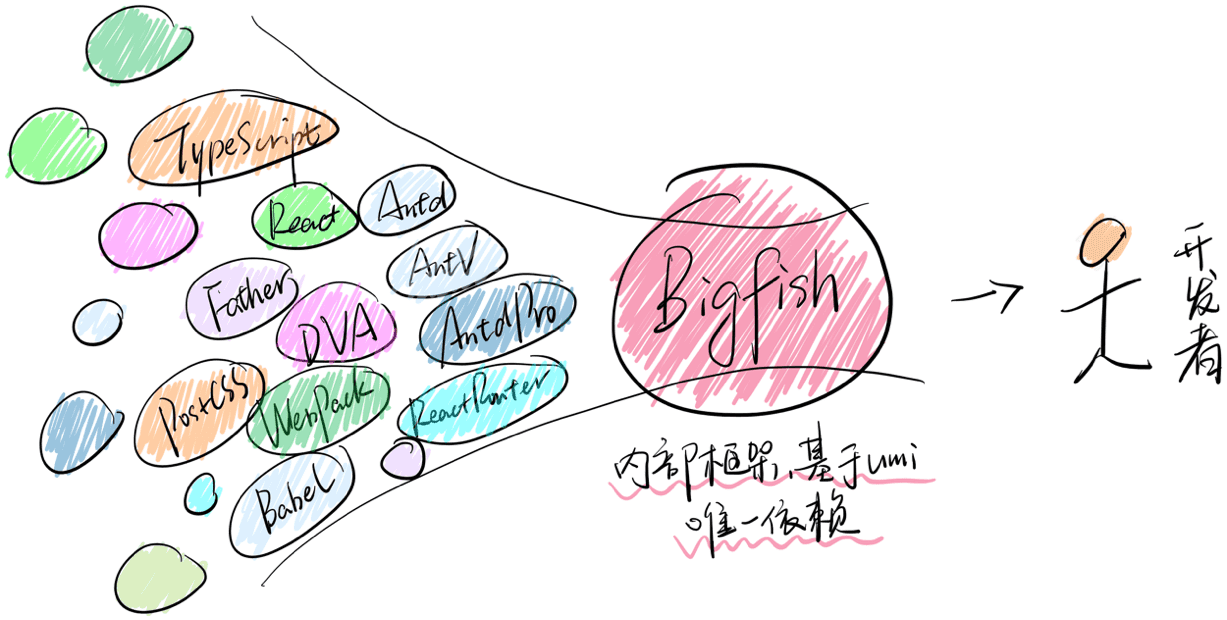 TypeScript
React
Antd
AntV
Father
DVA
AntdPro
PostCSS
WebPack
ReactRouter
Babel
Bigfish
内部框架、基于umi
唯一依赖
开发者